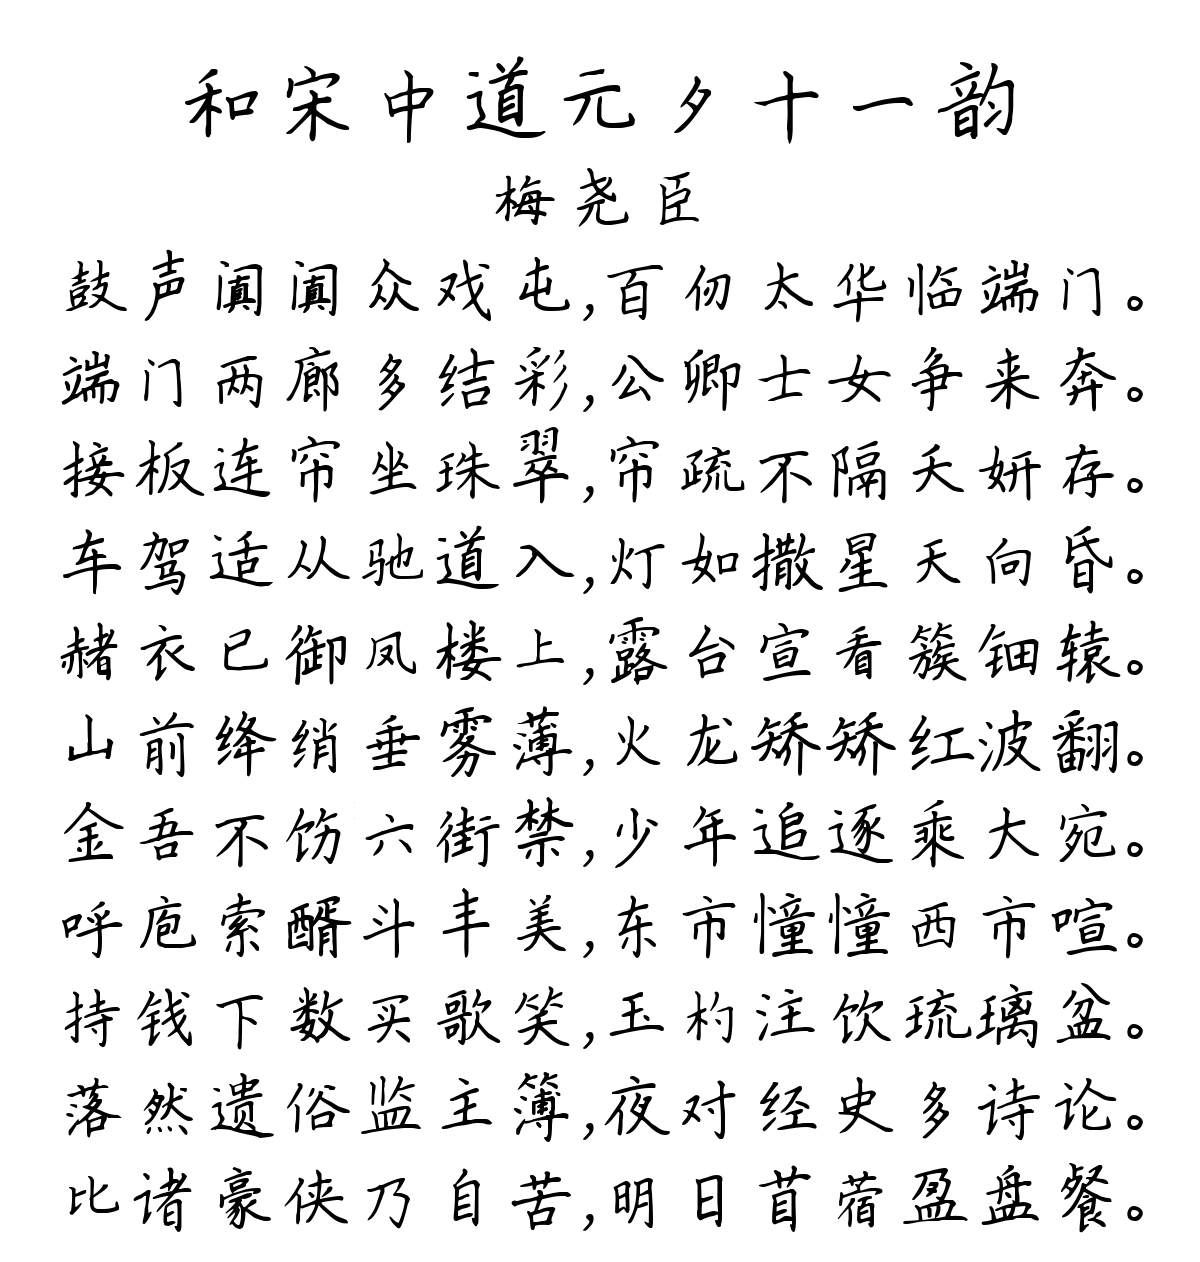 和宋中道元夕十一韵
梅尧臣
鼓声阗阗众戏屯,百仞太华临端门。
端门两廊多结彩,公卿士女争来奔。
接板连帘坐珠翠,帘疏不隔夭妍存。
车驾适从驰道入,灯如撒星天向昏。
赭衣已御凤楼上,露台宣看簇钿辕。
山前绛绡垂雾薄,火龙矫矫红波翻。
金吾不饬六街禁,少年追逐乘大宛。
呼庖索醑斗丰美,东市憧憧西市喧。
持钱下数买歌笑,玉杓注饮琉璃盆。
落然遗俗监主簿,夜对经史多诗论。
比诸豪侠乃自苦,明日苜蓿盈盘餐。